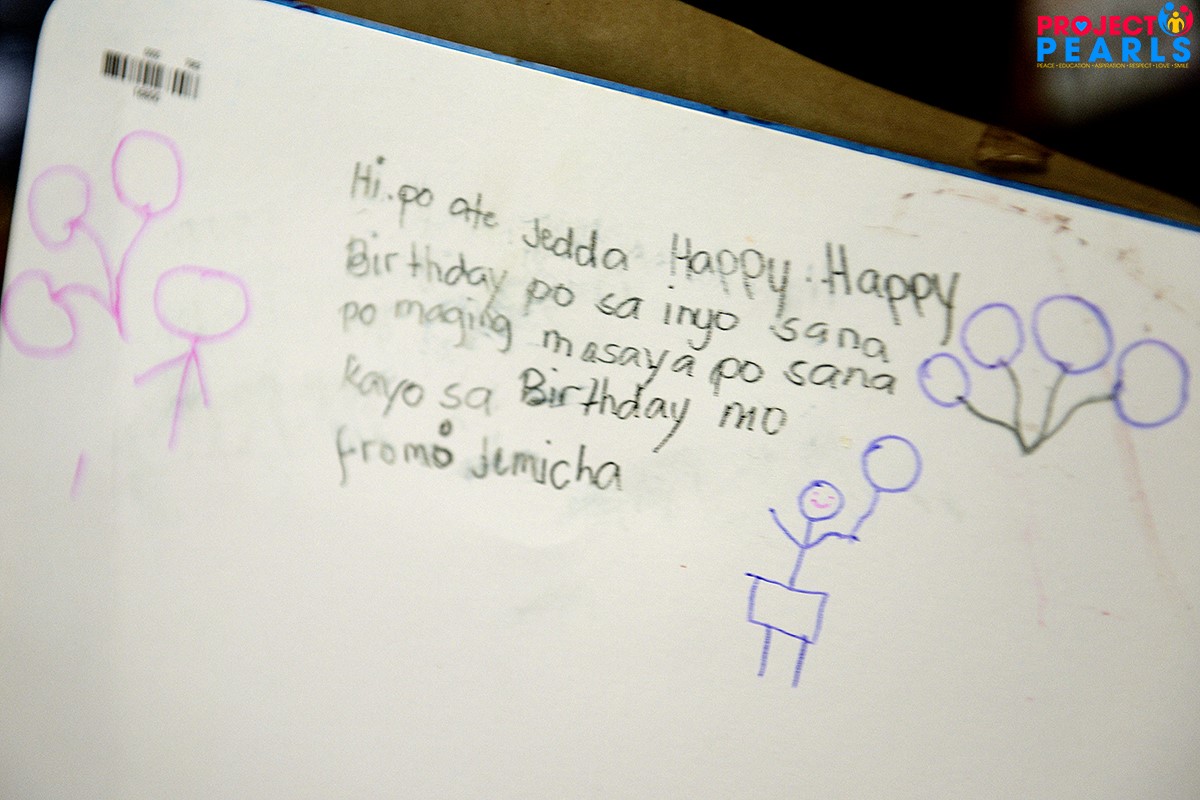 PROJECT
PEARLS
PEACE • EDUCATION • ASPIRATION • RESPECT • LOVE • SMILE
Hi.po ate Jedda Happy Happy
Birthday po sa inyo sana
po maging masaya po sana
kayo sa Birthday mo
from: Jemicha